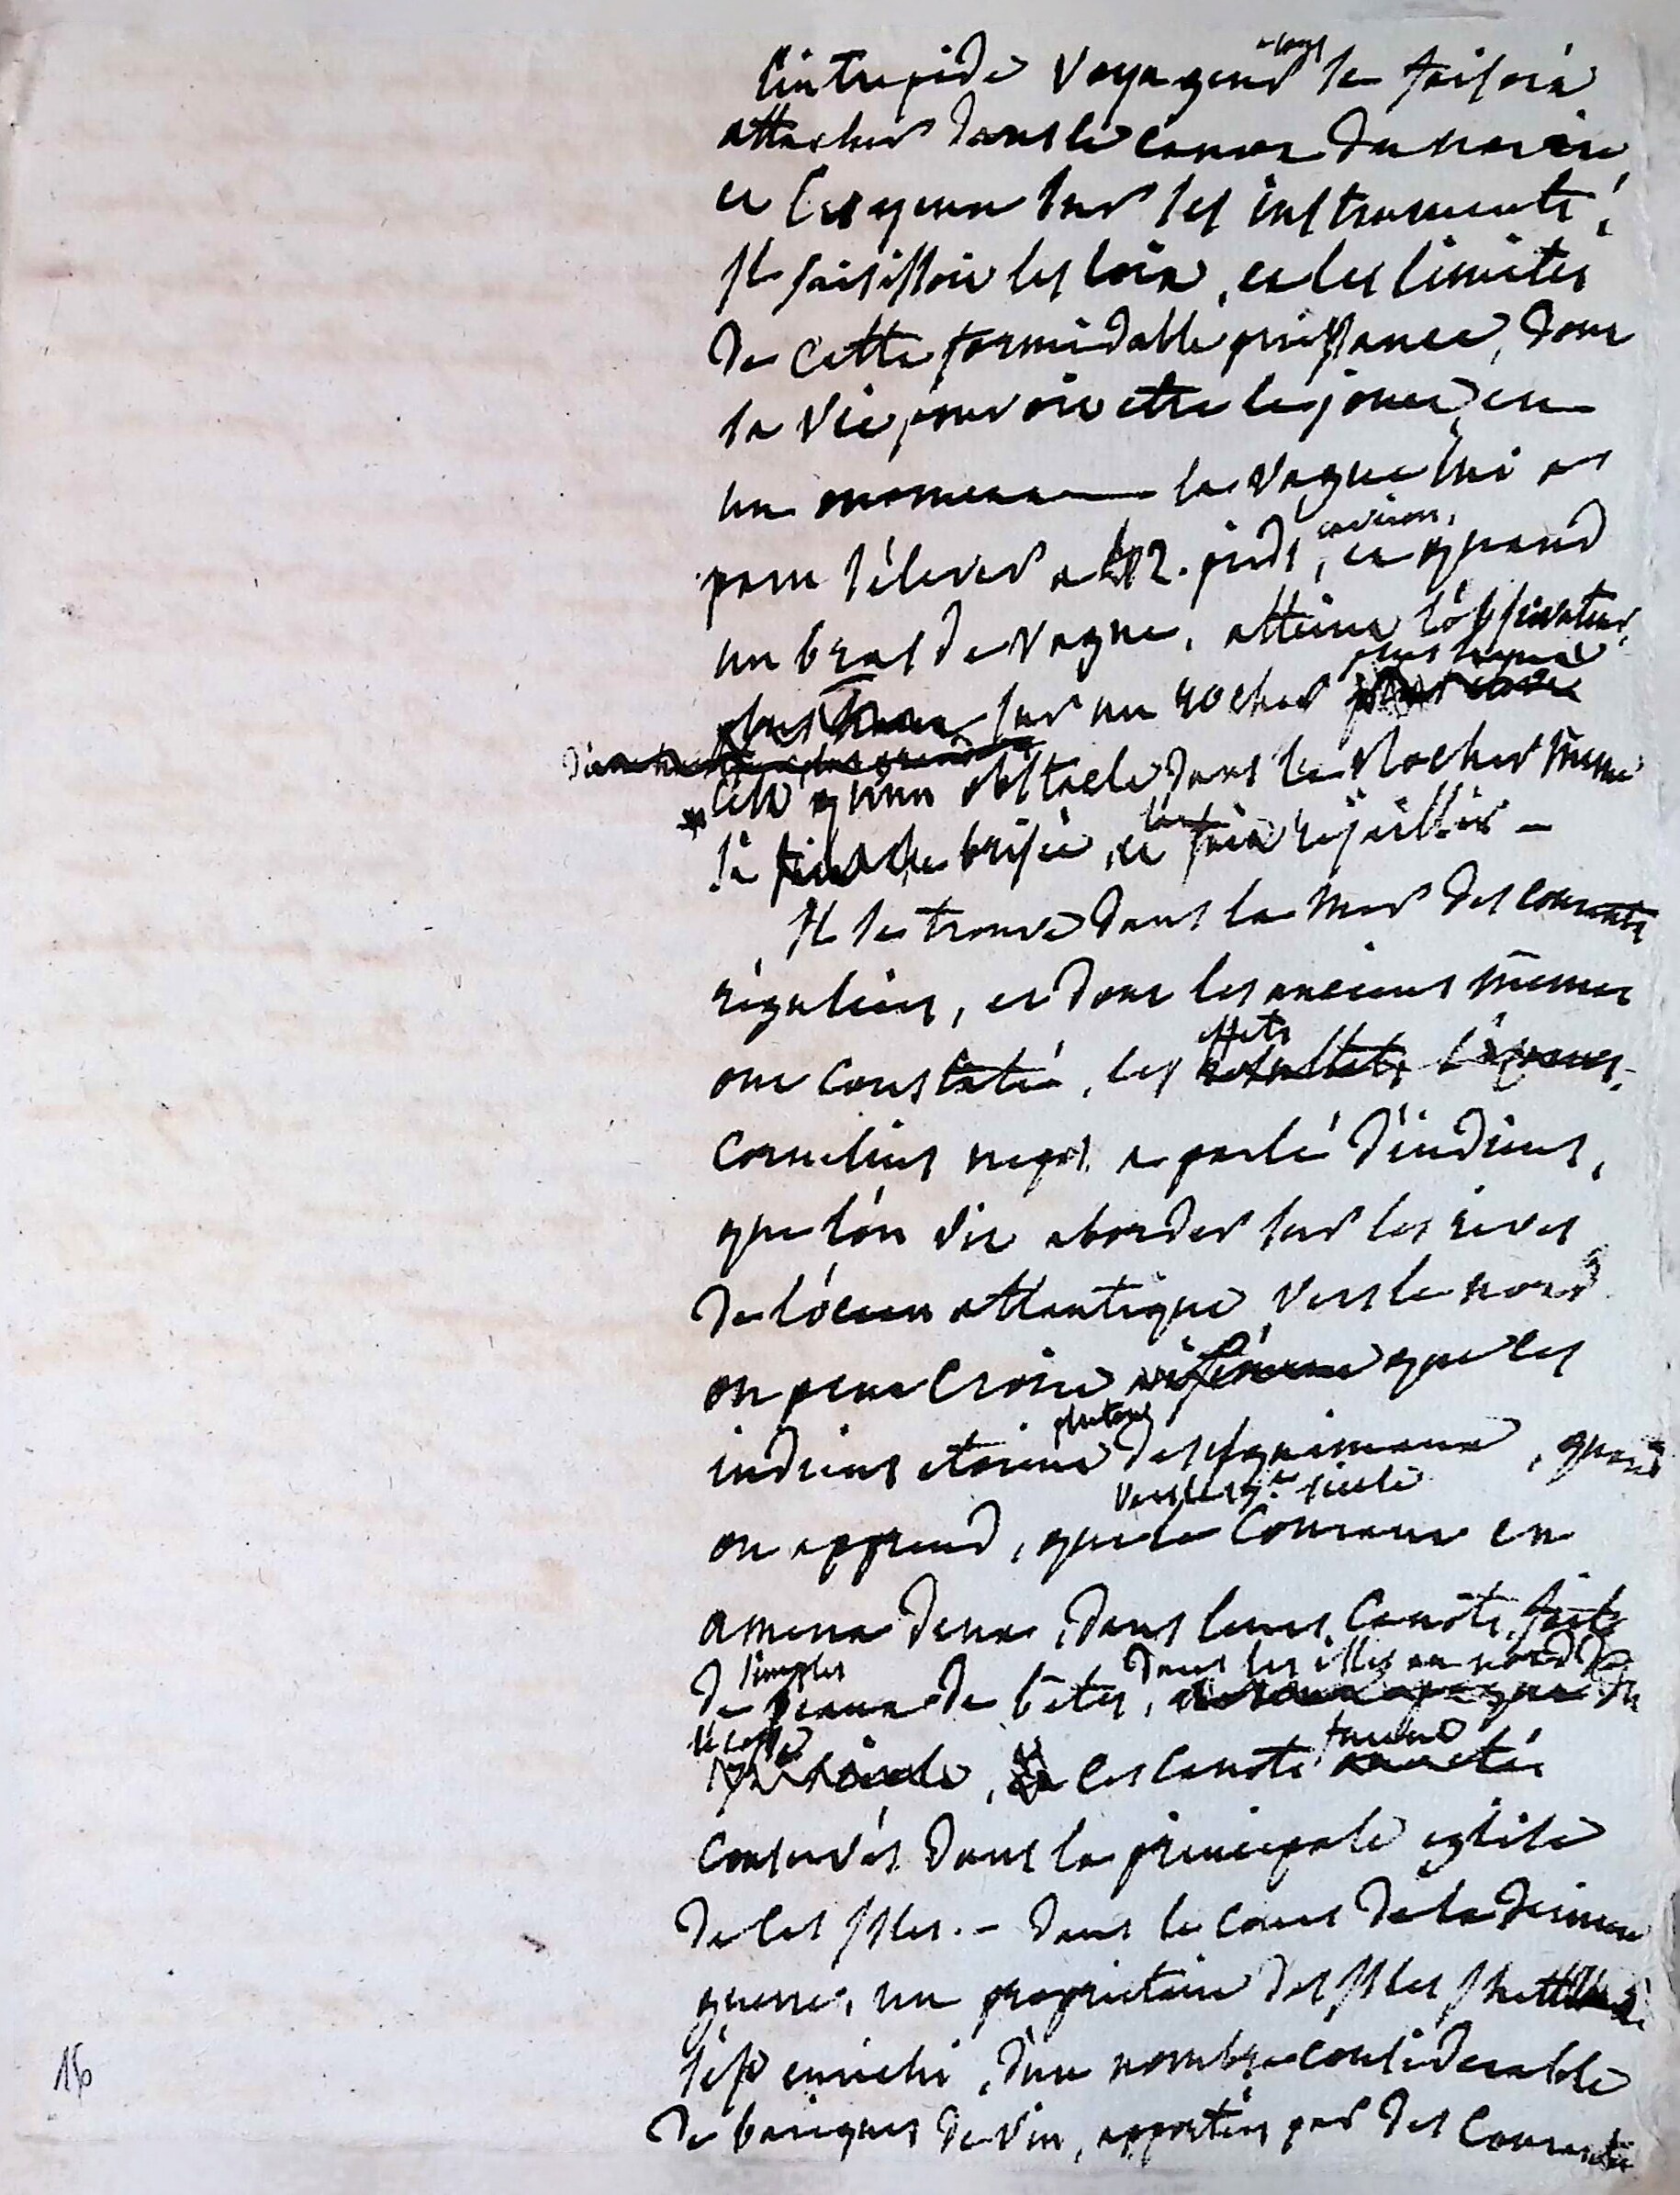 alors
l'intrepide Voyageur se faisoit
attacher dans le canot du navire
et les yeux sur ses instruments,
Il saisissoit les loix, et les limites
De cette formidable puissance, dont
sa vie pouvoit etre le jouet, en
un moment la vague lui a
paru s'élever a 12. pieds, et quand
environ,
un bras de vague, atteint l'observateur,
plus sur un rocher
plus
c'est qu'un obstacle dans le Rocher meme
l'a brisée, et l'a fait rejaillir –
Il se trouve dans la mer des courants
réguliers, et dont les anciens memes
effets
ont constaté, les resultats
Cornelius nepos a parlé d'indiens,
que l'on vit aborder sur les rives
De l'océan atlantique, vers le nord
on peut croire que les
plutost
indiens etoient des esquimaux, quand
Vers le 17.e siecle
on apprend, que le Courant en
amena deux, dans leurs Canots, faits
simples dans les isles au nord de
De peaux de bêtes, du
l'ecosse
siecle, ces canots furent
conservés dans la principale eglise
De ces Isles. – Dans le cours de la derniere
guerre, un proprietaire des Isles Shettland
s'est enrichi, d'un nombre considerable
De bariques de vin, apportées par des Courants
16